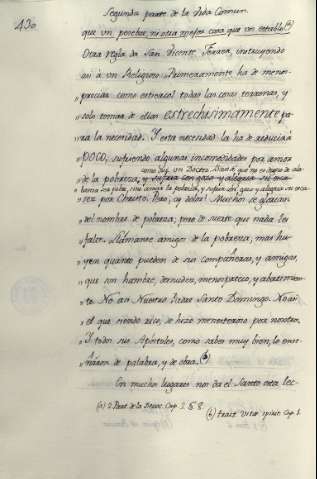 430
Segunda parte de la Vida Comun.
que un pesebre, ni otra mejor casa que un establo (a)
Otra regla da San Vicente Ferrer, instruyendo
assi à un Religioso. Primeramente ha de menos-
preciar como estiercol todas las cosas terrenas, y
„ solo tomar de ellas estrechisimamente pa-
ra la necesidad. Y esta necesidad la ha de reducir à
„ poco, sufriendo algunas incomodidades por amor
„ de la pobreza;
„ rez por Christo. Pero, ay dolor! Muchos se glorian
„ del nombre de pobreza; pero de suerte que nada les
„ falte. Llamanse amigos de la pobreza, mas hu-
„ yen quanto pueden de sus compañeras, y amigas,
„ que son hambre, desnudez, menosprecio, y abatimien-
„ to. No assi Nuestro Padre Santo Domingo. No assi
„ el que siendo rico, se hizo menesteroso por nosotros.
„ Y todos sus Apóstoles, como sabes muy bien, lo ense-
„ ñaron de palabra, y de obra. (b)
En muchos lugares nos da el Santo esta lec-
(a) 2 Part. de la Cap. 2. § 8.
(b) tract. vitæ spirit. Cap. 1.